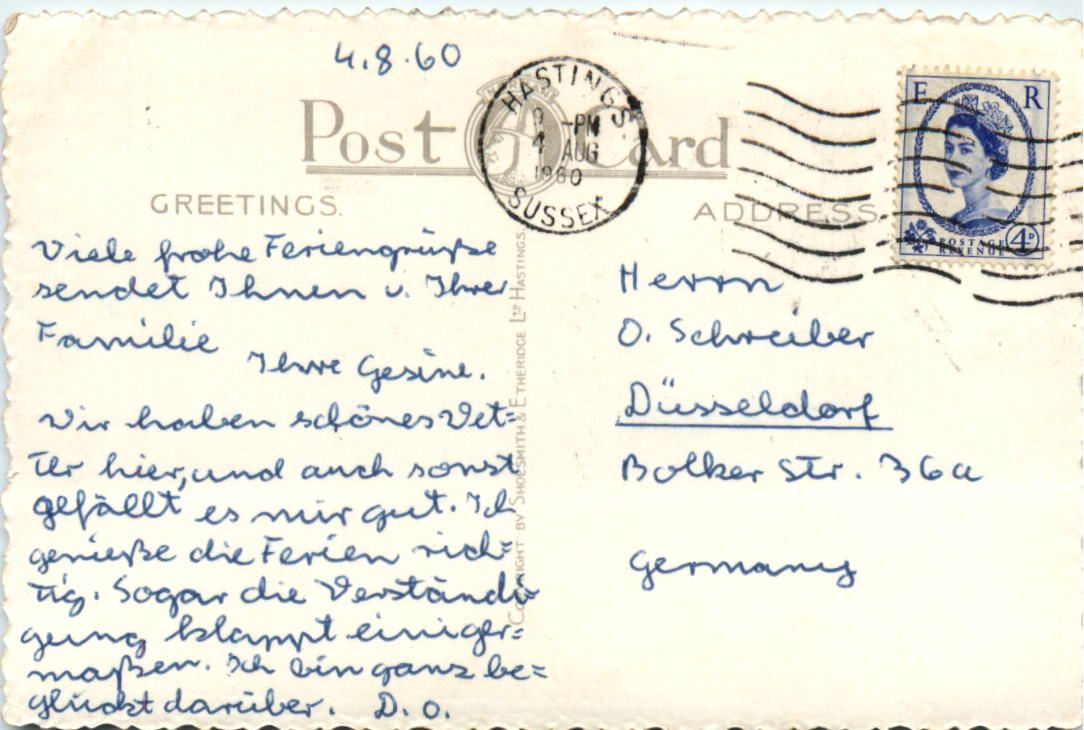 4.8.60
Post Card
HASTINGS.
9 -PM
4 AUG
1960
SUSSEX
E R
POSTAGE
REVENUE
4D
GREETINGS.
ADDRESS
Viele frohe Feriengrüße
sendet Ihnen u. Ihrer
Familie
Ihre Gesine.
Wir haben schönes Wet=
ter hier, und auch sonst
gefällt es mir gut. Ich
genieße die Ferien rich=
tig. Sogar die Verständi
gung klappt einiger=
maßen. Ich bin ganz be=
glückt darüber. D. O.
COPYRIGHT BY SHOESMITH & ETHERIDGE LTD HASTINGS.
Herrn
O. Schreiber
Düsseldorf
Bolker Str. 36a
Germany